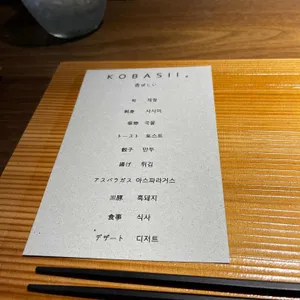 KOBASII.
香ばしい
旬 제철
刺身 사시미
吸物 국물
トースト 토스트
餃子 만두
揚げ 튀김
アスパラガス 아스파라거스
黒豚 흑돼지
食事 식사
デザート 디저트